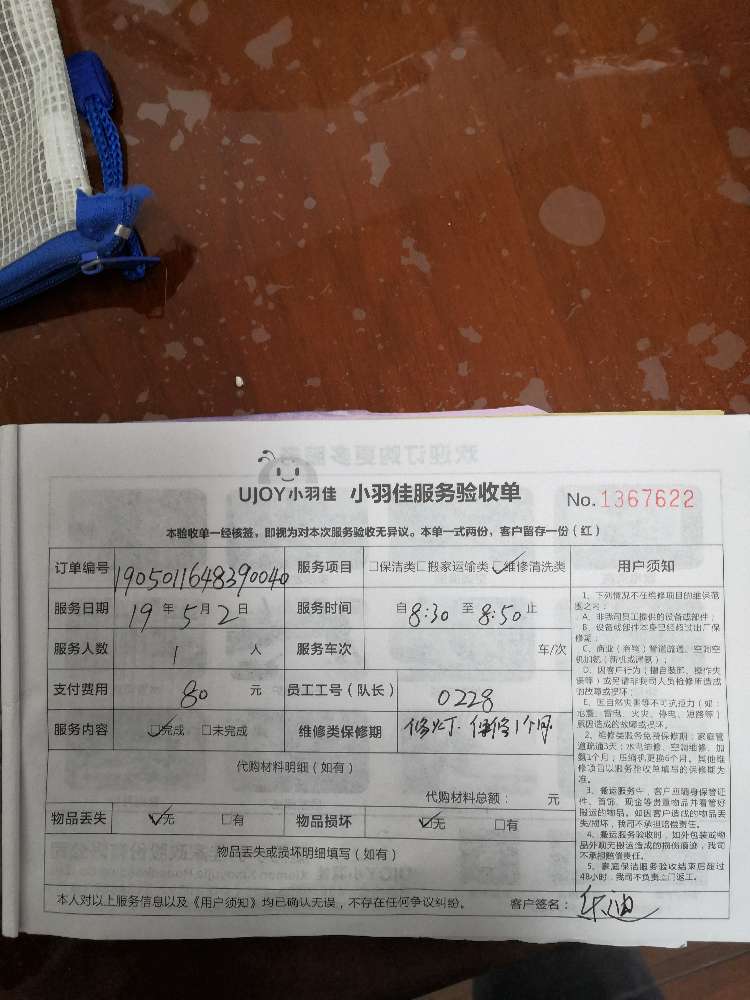 UJOY小羽佳 小羽佳服务验收单 No.1367622
本验收单一经核签，即视为对本次服务验收无异议。本单一式两份，客户留存一份（红）
订单编号 1905011648390040 服务项目 □保洁类□搬家运输类☑维修清洗类
服务日期 19年5月2日 服务时间 自8:30至8:50止
服务人数 1 人 服务车次 车/次
支付费用 80 元 员工工号（队长） 0228
服务内容 ☑完成 □未完成 维修类保修期 修灯·保修1个月
代购材料明细（如有）
代购材料总额： 元
物品丢失 ☑无 □有 物品损坏 ☑无 □有
物品丢失或损坏明细填写（如有）
本人对以上服务信息以及《用户须知》均已确认无误，不存在任何争议纠纷。 客户签名：
用户须知
1、下列情况不在维修项目的维保范
围之内：
A、非我司员工提供的设备或部件；
B、设备或部件本身已经超过出厂保
修期；
C、商业（商务）管道疏通、空调空
D、因客户行为（擅自装卸、操作失
误等）或另请非我司人员检修所造成
的故障或损坏；
E、因自然灾害等不可抗拒力（如：
地震、雷电、火灾、停电、短路等）
原因造成的故障或损坏。
2、维修类服务免费保修期：家庭管
道疏通3天；水电维修、空调维修、加
氟1个月；压缩机更换6个月，其他维
修项目以服务验收单填写的保修期为
准。
3、搬运服务中，客户应随身保管证
件、首饰、现金等贵重物品并看管好
搬运的物品。如因客户造成的物品丢
失/损坏，我司不承担赔偿责任。
4、搬运服务验收时，如外包装或物
品外观无搬运造成的损伤痕迹，我司
不承担赔偿责任。
5、家庭保洁服务验收结束后超过
48小时，我司不负责上门返工。